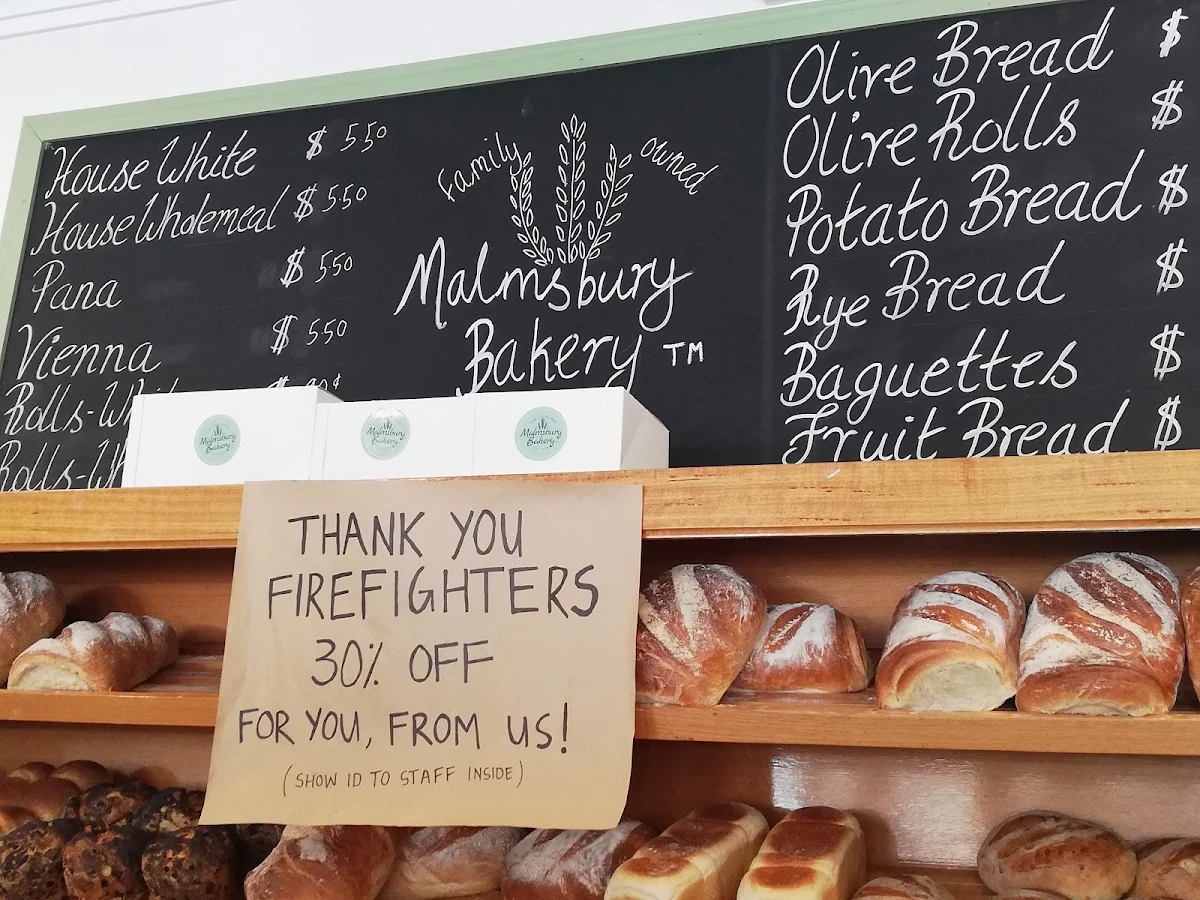 House White $ 5.50
House Wholemeal $ 5.50
Pana $ 5.50
Vienna $ 5.50
Rolls-
Rolls-
Family owned
Malmsbury
Bakery TM
Olive Bread $
Olive Rolls $
Potato Bread $
Rye Bread $
Baguettes $
Fruit Bread $
Malmsbury
Bakery
Malmsbury
Bakery
Malmsbury
Bakery
THANK YOU
FIREFIGHTERS
30% OFF
FOR YOU, FROM US!
(SHOW ID TO STAFF INSIDE)